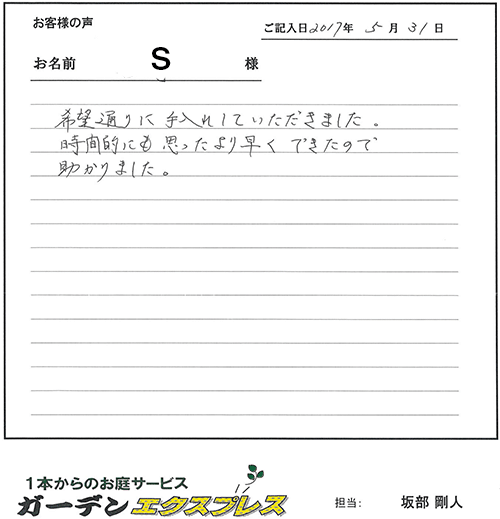 お客様の声
ご記入日2017年 5月 31日
お名前 S 様
希望通りに手入れしていただきました。
時間的にも思ったより早くできたので
助かりました。
1本からのお庭サービス
ガーデンエクスプレス
担当: 坂部 剛人